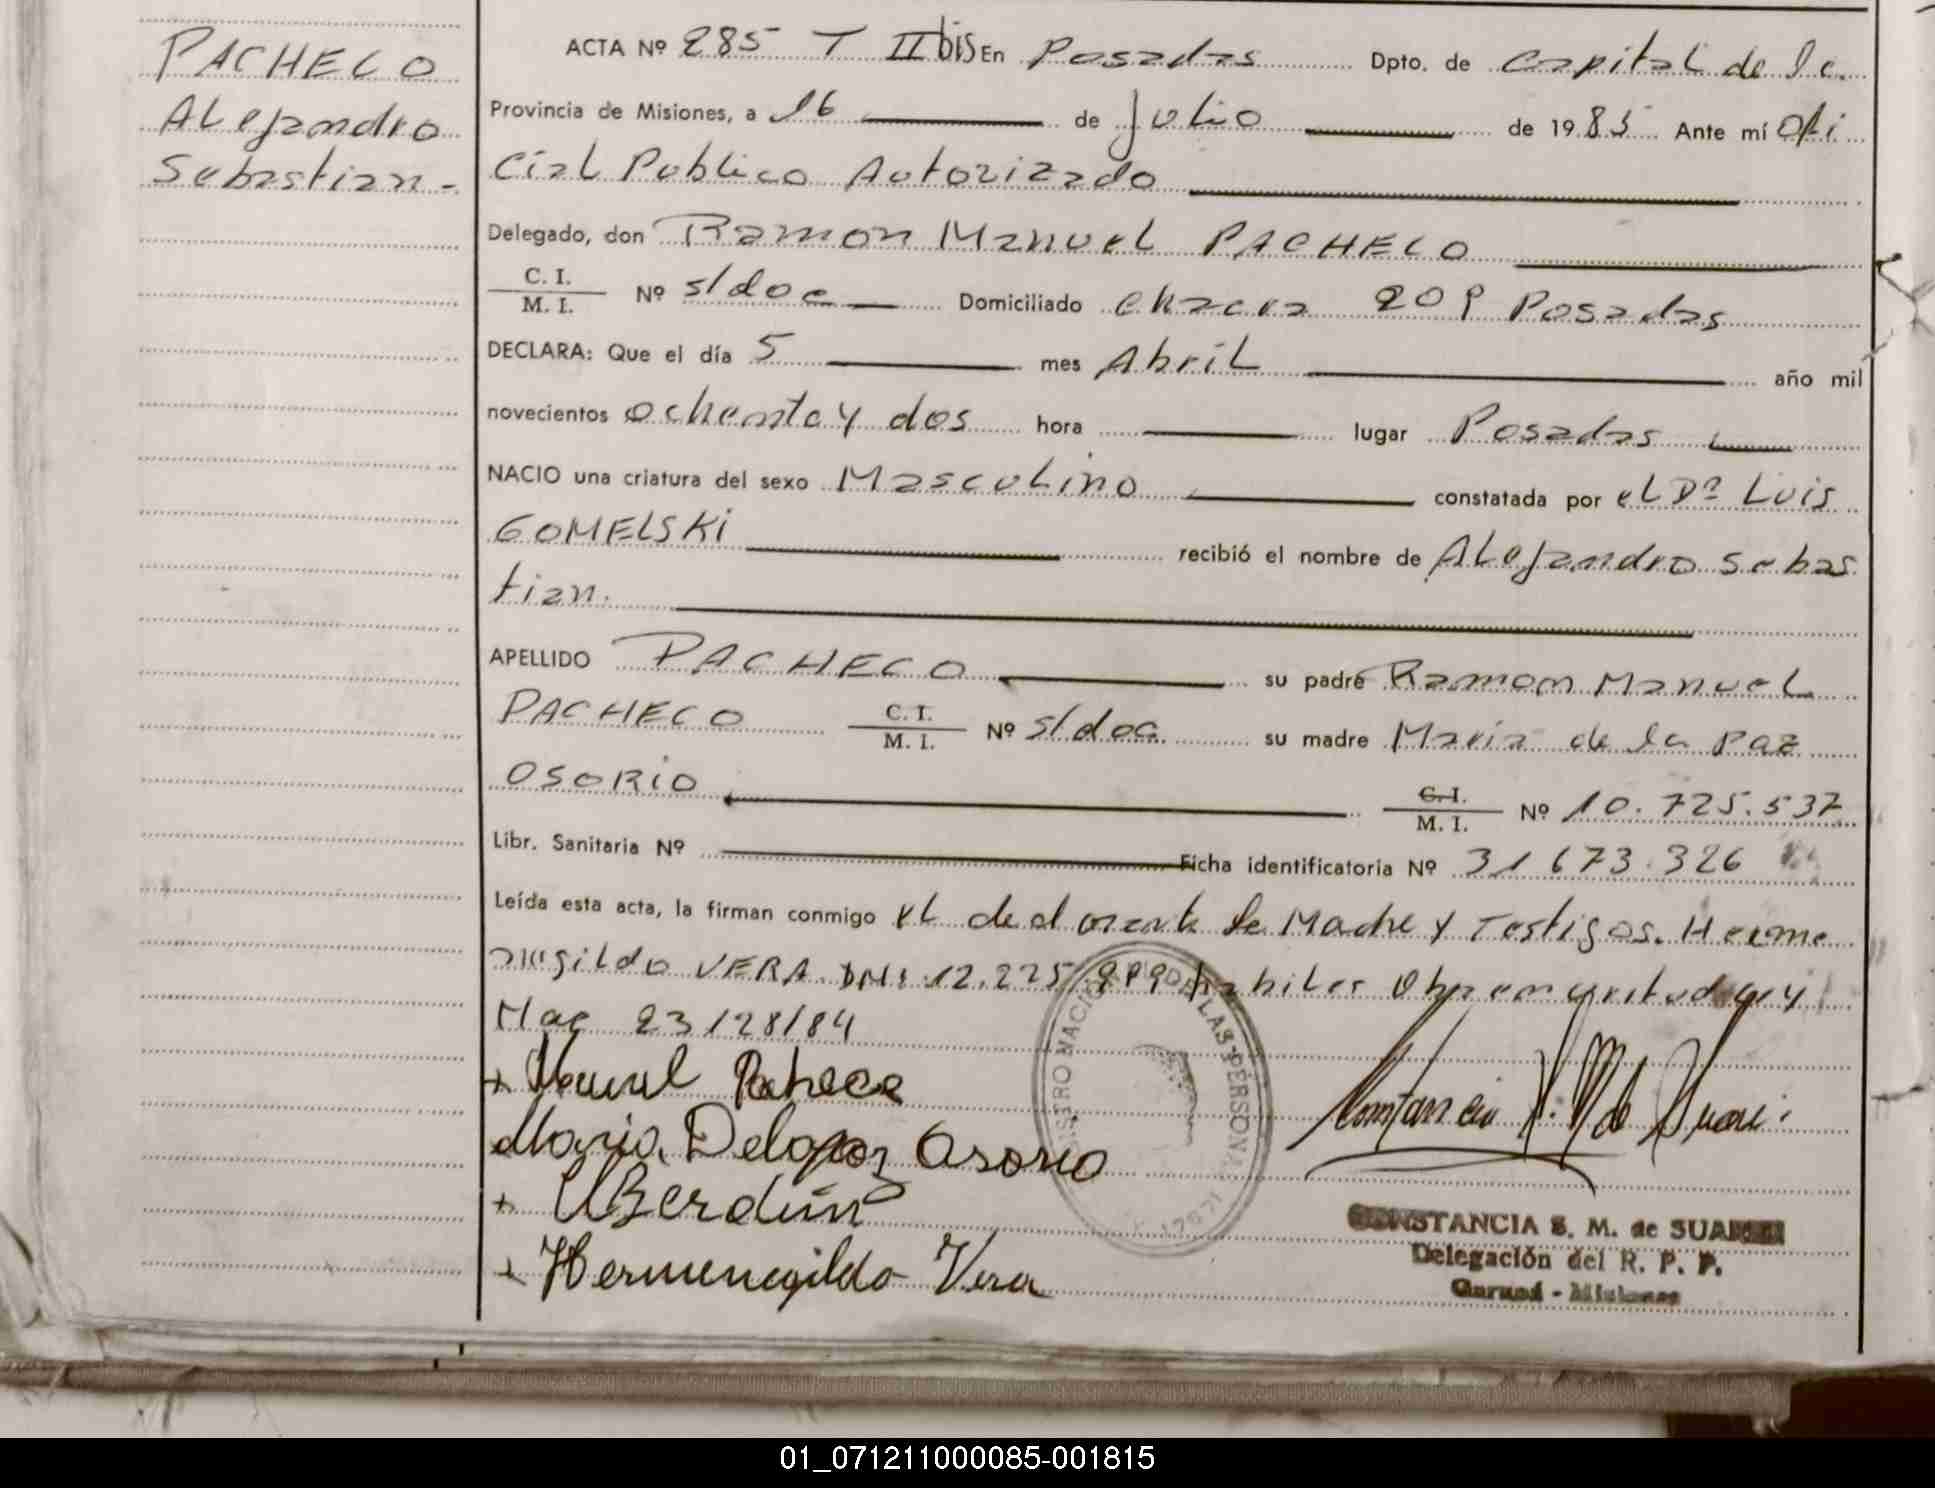 PACHECO
Alejandro
Sebastian -
ACTA Nº 285 T II bis En Posadas Dpto. de Capital de la
Provincia de Misiones, a 16 de Julio de 1985 Ante mí Ofi
cial Publico Autorizado
Delegado, don Ramon Manuel PACHECO
C. I.
M. I.
Nº s/doc Domiciliado chacra 209 Posadas
DECLARA: Que el día 5 mes Abril año mil
novecientos ochenta y dos hora lugar Posadas
NACIO una criatura del sexo Masculino constatada por el Dr Luis
GOMELSKI recibió el nombre de Alejandro Sebas
tian.
APELLIDO PACHECO su padre Ramon Manuel
PACHECO C. I. M. I. Nº s/doc su madre Maria de la Paz
OSORIO C. I. M. I. Nº 10.725.537
Libr. Sanitaria Nº Ficha identificatoria Nº 31 673.326
Leída esta acta, la firman conmigo el declarante la Madre y Testigos. Herme
negildo VERA DNI 12.225 habiles
23/28/84
+ Manuel Pacheco
Maria. Delapaz Osorio
+ Berdún
+ Hermenegildo Vera
REGISTRO NACIONAL DE LAS PERSONAS
CONSTANCIA S. M. de SUAREZ
Delegación del R. P. P.
Garupá - Misiones
01_071211000085-001815